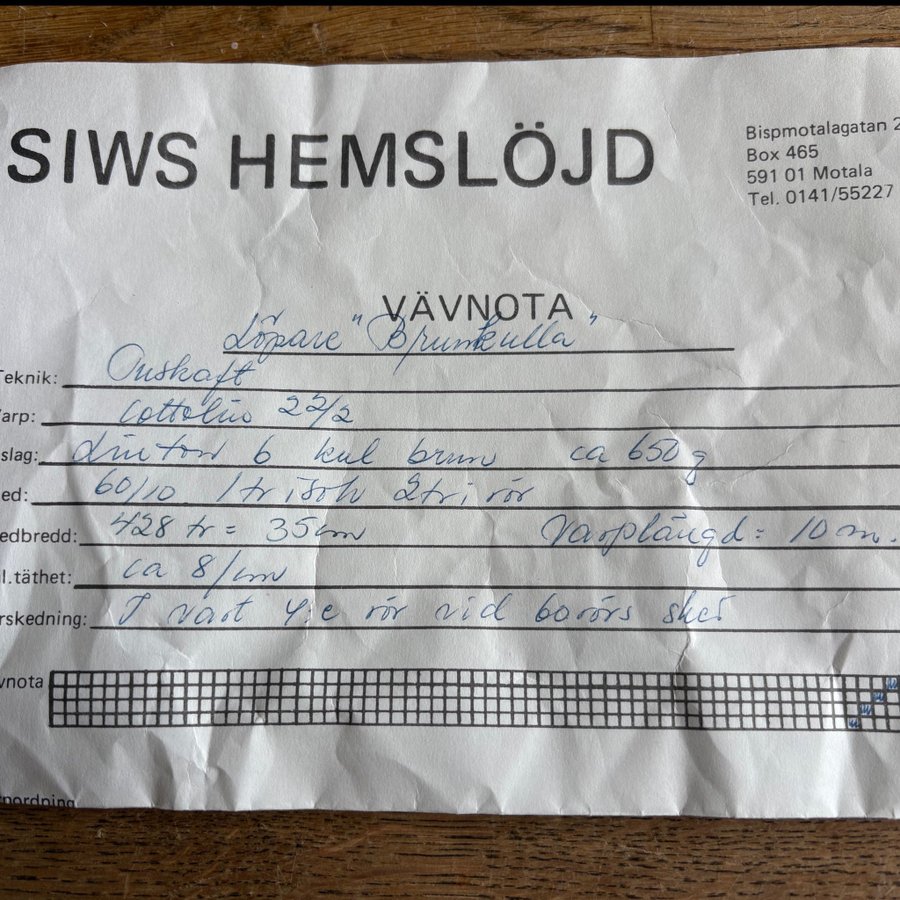 SIWS HEMSLÖJD
Bispmotalagatan 2
Box 465
591 01 Motala
Tel. 0141/55227
VÄVNOTA
Löpare "Brunkulla"
Teknik: Tuskaft
arp: Cottolin 22/2
slag: Lintow 6 kul brun ca 650 g
ed: 60/10 1 tr i solv 2 tr i rör
edbredd: 428 tr = 35 cm Varplängd = 10 m.
l.täthet: ca 8/cm
rskedning: I vart 4:e rör vid 60 rörs sked
vnota
pordning